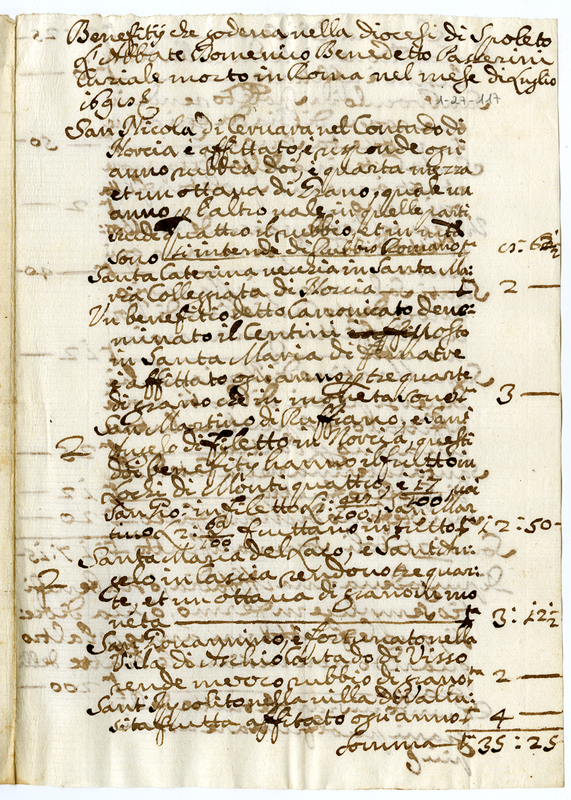 Benefitij che godeva nella diocesi di Spoleto
l'Abbate Domenico Benedetto Passerini
morto in Roma nel mese di luglio
1-27-117
San Nicola di Cervara nel Contado di
Norcia è affittato, e risponde ogni
anno rubbia doi, e quarta mezza
et un ottava di Grano, quale un
anno l'altro vale in quelle parti
scudi quattro il rubbio, et in
sono si intende di Rubbio Romano
Santa Caterina in Santa Ma:
ria Collegiata di Norcia 2 —
Un benefitio detto Canonicato deno:
minato il Centini
in Santa Maria di
è affittato ogni anno tre quarte
di grano che in moneta sono 3 —
San Martino di Ruffiano, e Sant'
Angelo di Filetto in Norcia, questi
2 doi benefitij hanno il frutto in
Lochi di Monti quattro, e 17/100 cioè
in Filetto San Mar
tino fruttano 12:50
Santa Maria del Lago, e Sant'An:
2 gelo in Cascia rendono tre quar:
te, et un ottava di grano in mo
neta 3:12½
San Giovannino, e Fortunato nella
Villa di Aschio Contado di Visso
rende mezzo rubbio di grano 2 —
Sant'Ippolito nella villa di
sita frutta affittato ogni anno 4 —
somma 35:25